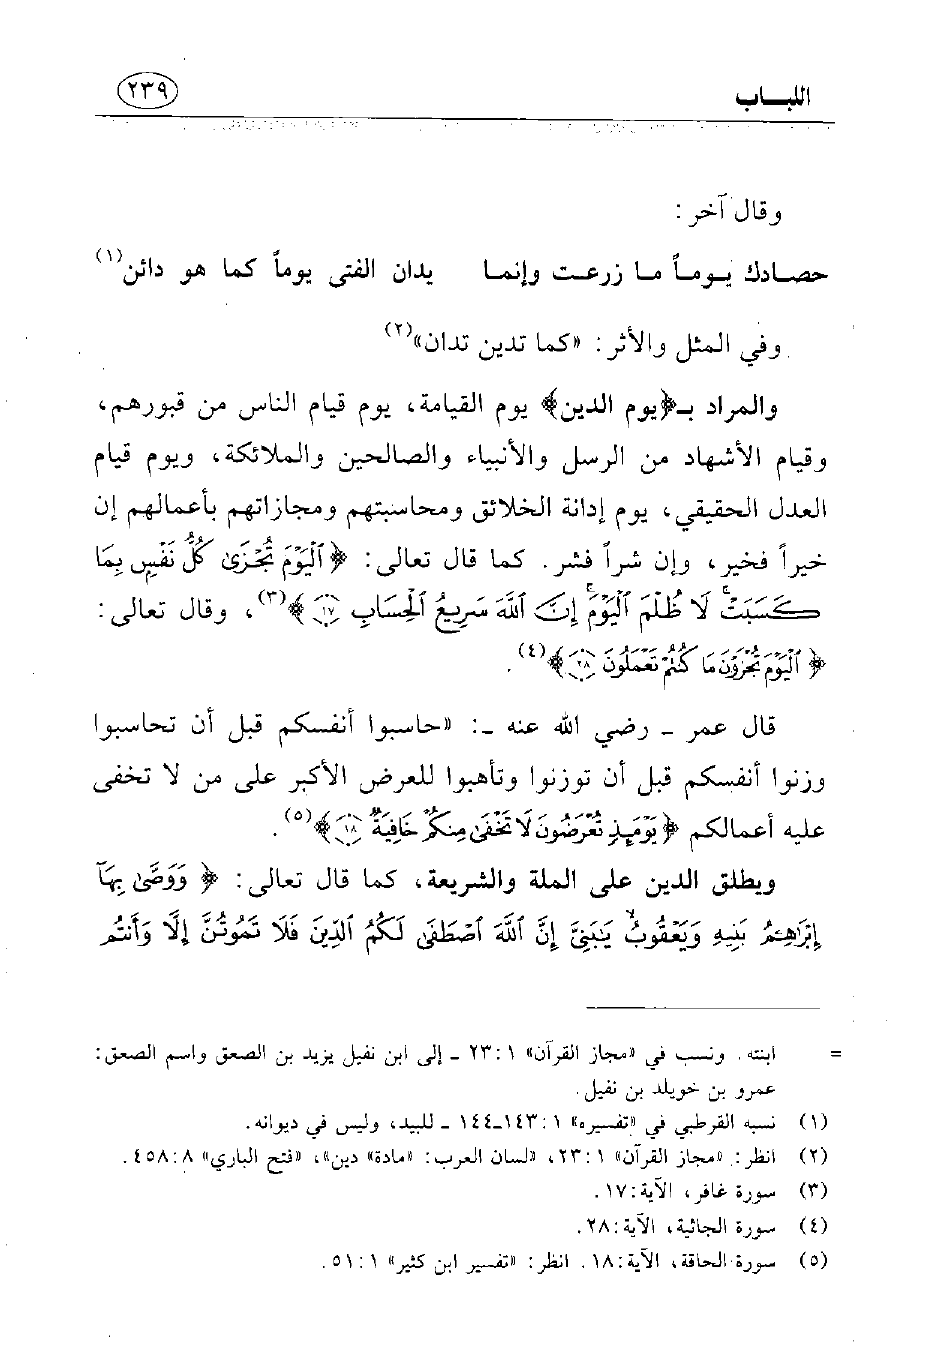 اللبـــاب
٢٣٩
وقال آخر :
حصـادك يـومـاً مـا زرعـت وإنمـا يدان الفتى يوماً كما هو دائن(١)
وفي المثل والأثر : «كما تدين تدان»(٢)
والمراد بـ﴿يوم الدين﴾ يوم القيامة، يوم قيام الناس من قبورهم،
وقيام الأشهاد من الرسل والأنبياء والصالحين والملائكة، ويوم قيام
العدل الحقيقي، يوم إدانة الخلائق ومحاسبتهم ومجازاتهم بأعمالهم إن
خيراً فخير، وإن شراً فشر. كما قال تعالى: ﴿ ٱلْيَوْمَ تُجْزَىٰ كُلُّ نَفْسٍۭ بِمَا
كَسَبَتْ ۚ لَا ظُلْمَ ٱلْيَوْمَ ۚ إِنَّ ٱللَّهَ سَرِيعُ ٱلْحِسَابِ ١٧ ﴾(٣)، وقال تعالى:
﴿ ٱلْيَوْمَ تُجْزَوْنَ مَا كُنتُمْ تَعْمَلُونَ ٢٨ ﴾(٤).
قال عمر ـ رضي الله عنه ـ: «حاسبوا أنفسكم قبل أن تحاسبوا
وزنوا أنفسكم قبل أن توزنوا وتأهبوا للعرض الأكبر على من لا تخفى
عليه أعمالكم ﴿ يَوْمَئِذٍ تُعْرَضُونَ لَا تَخْفَىٰ مِنكُمْ خَافِيَةٌ ١٨ ﴾(٥).
ويطلق الدين على الملة والشريعة، كما قال تعالى: ﴿ وَوَصَّىٰ بِهَآ
إِبْرَٰهِـۧمُ بَنِيهِ وَيَعْقُوبُ يَٰبَنِىَّ إِنَّ ٱللَّهَ ٱصْطَفَىٰ لَكُمُ ٱلدِّينَ فَلَا تَمُوتُنَّ إِلَّا وَأَنتُم
= ابنته. ونسب في «مجاز القرآن» ١ : ٢٣ ـ إلى ابن نفيل يزيد بن الصعق واسم الصعق:
عمرو بن خويلد بن نفيل.
(١) نسبه القرطبي في «تفسيره» ١ : ١٤٣ـ١٤٤ ـ للبيد، وليس في ديوانه.
(٢) انظر: «مجاز القرآن» ١ : ٢٣، «لسان العرب: «مادة» دين»، «فتح الباري» ٨ : ٤٥٨.
(٣) سورة غافر، الآية: ١٧.
(٤) سورة الجاثية، الآية: ٢٨.
(٥) سورة الحاقة، الآية: ١٨. انظر: «تفسير ابن كثير» ١ : ٥١.